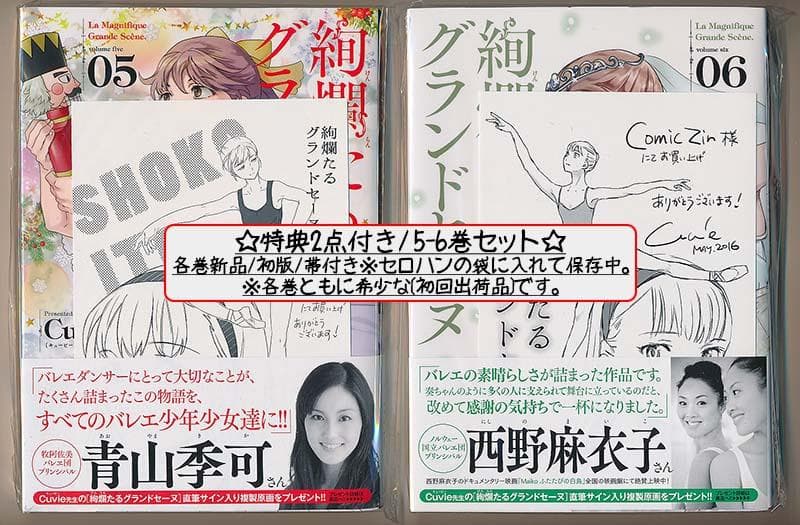 La Magnifique
Grande Scène.
volume five
05
絢爛
けん
らん
グラ
SHOKO
IT
絢爛たる
グランドセーヌ
にてお買い上げ
ありがとう
ございます!
Presented
Cuvie
La Magnifique
Grande Scène.
volume six
06
絢爛
けん
グランドセーヌ
Comic Zin 様
にてお買い上げ
ありがとうございます!
Cuvie
MAY.2016
☆特典2点付き/5-6巻セット☆
各巻新品/初版/帯付き※セロハンの袋に入れて保存中。
※各巻ともに希少な(初回出荷品)です。
「バレエダンサーにとって大切なことが、
たくさん詰まったこの物語を、
すべてのバレエ少年少女達に!!」
牧阿佐美
バレヱ団
プリンシパル
あお やま き か
青山季可さん
Cuvie先生の「絢爛たるグランドセーヌ」直筆サイン入り複製原画をプレゼント!!
「バレエの素晴らしさが詰まった作品です。
奏ちゃんのように多くの人に支えられて舞台に立っているのだと、
改めて感謝の気持ちで一杯になりました。」
ノルウェー
国立バレエ団
プリンシパル
にし の ま い こ
西野麻衣子さん
西野麻衣子のドキュメンタリー映画「Maiko ふたたびの白鳥」全国の映画館にて絶賛上映中!
Cuvie先生の「絢爛たるグランドセーヌ」直筆サイン入り複製原画をプレゼント!!